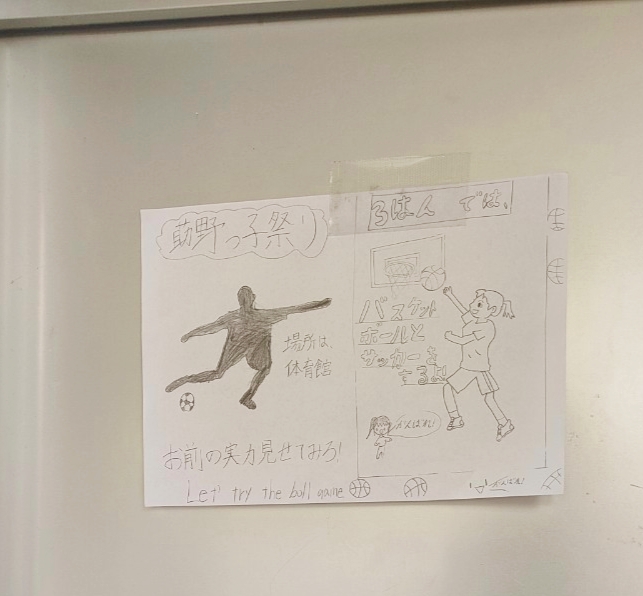 萌野っ子祭り
場所は、
体育館
お前の実力見せてみろ!
Let' try the ball game
ろはん では、
バスケット
ボールと
サッカーを
するよ!
がんばれ!
がんばれ!